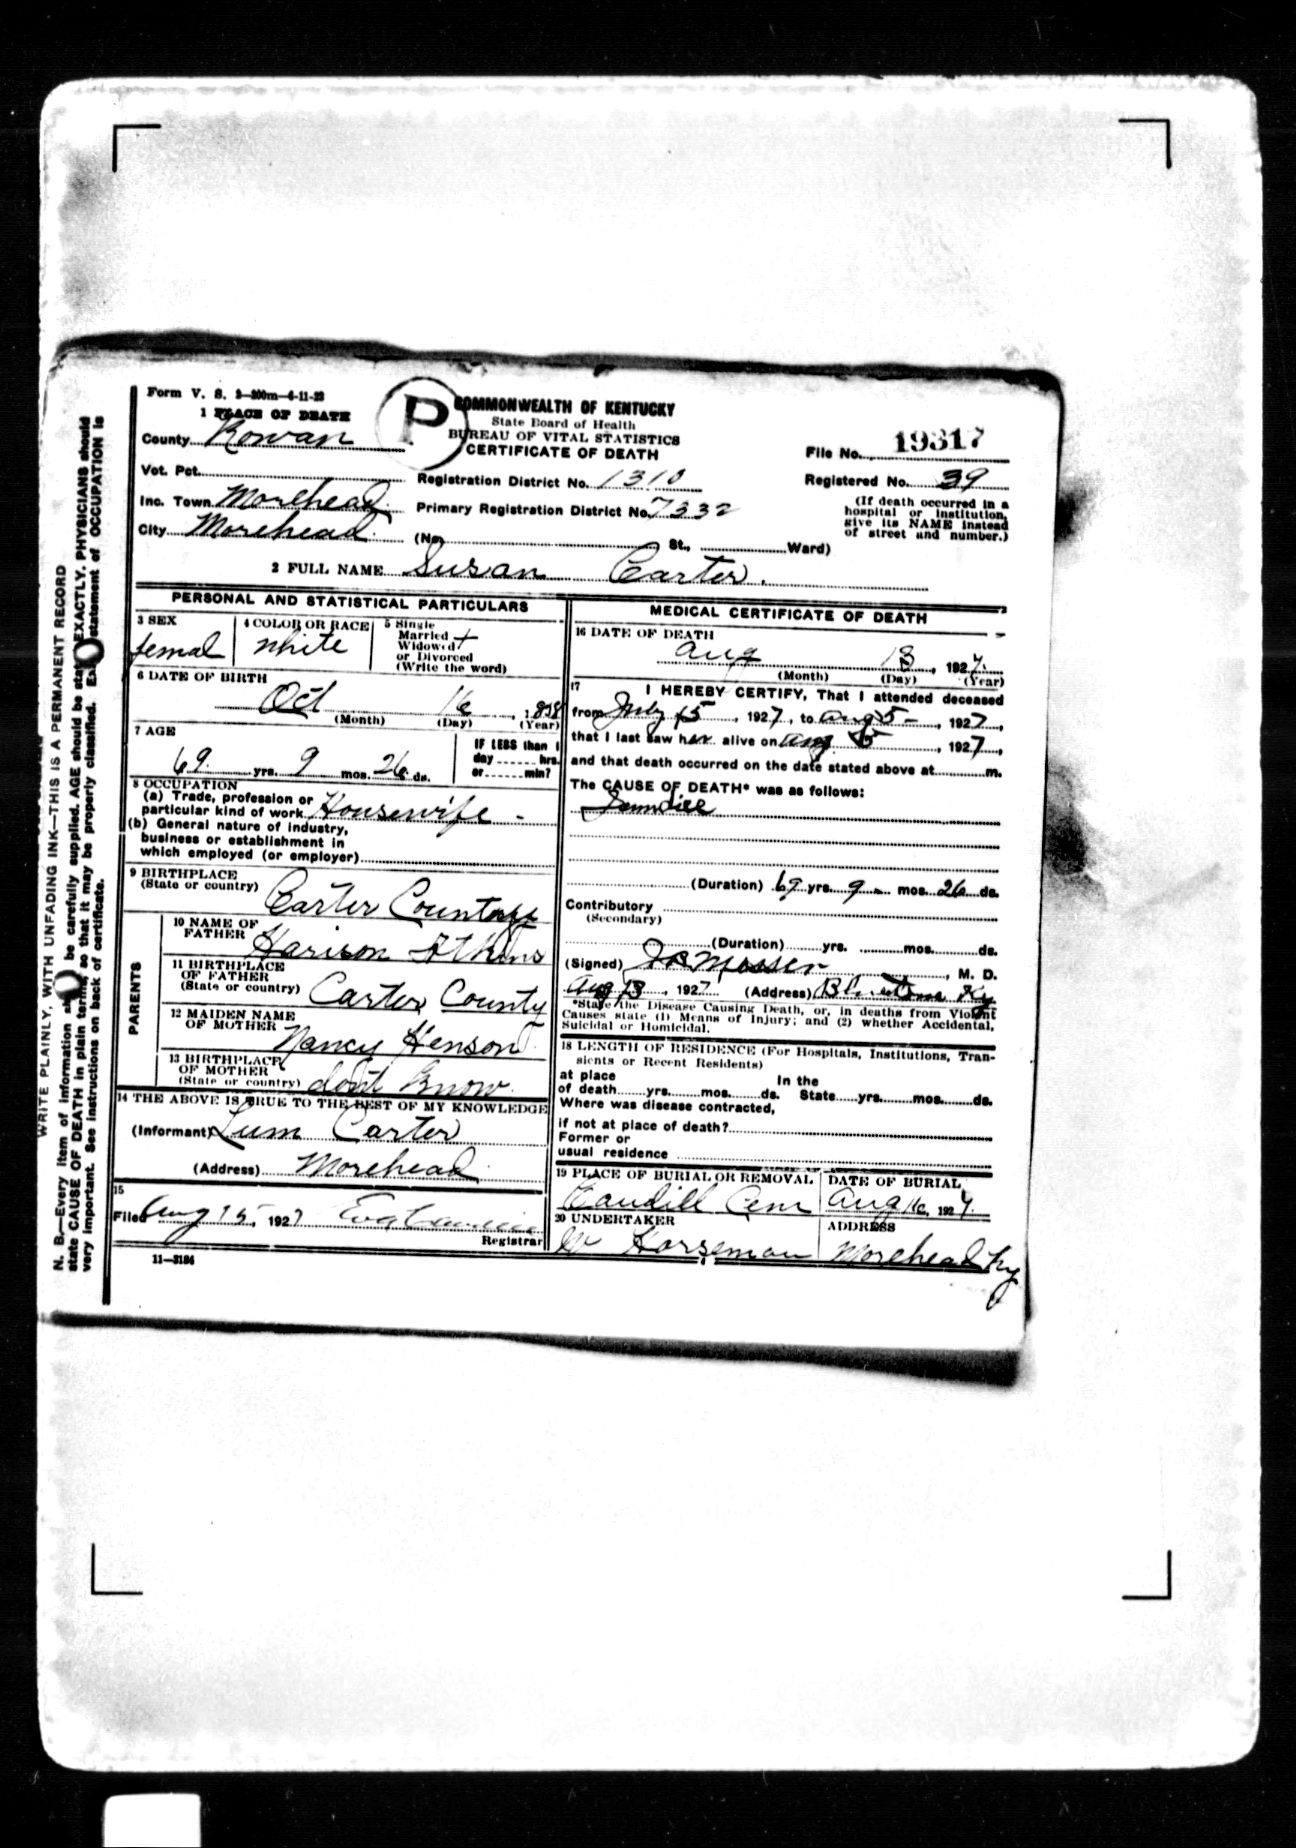 Form V. S. 2—200m—4-11-23
1 PLACE OF DEATH
County Rowan
Vot. Pct.
Inc. Town Morehead
City Morehead.
P
COMMONWEALTH OF KENTUCKY
State Board of Health
BUREAU OF VITAL STATISTICS
CERTIFICATE OF DEATH
Registration District No. 1310
Primary Registration District No. 7332
(No. St., Ward)
File No. 19317
Registered No. 39
(If death occurred in a
hospital or institution,
give its NAME instead
of street and number.)
2 FULL NAME Susan Carter.
PERSONAL AND STATISTICAL PARTICULARS
3 SEX
femal
4 COLOR OR RACE
White
5 Single
Married
Widowed +
or Divorced
(Write the word)
6 DATE OF BIRTH
Oct 16, 1858
(Month) (Day) (Year)
7 AGE
69 yrs. 9 mos. 26 ds.
IF LESS than 1
day hrs.
or min?
8 OCCUPATION
(a) Trade, profession or
particular kind of work Housewife -
(b) General nature of industry,
business or establishment in
which employed (or employer)
9 BIRTHPLACE
(State or country) Carter County Ky
PARENTS
10 NAME OF
FATHER Harison
11 BIRTHPLACE
OF FATHER
(State or country) Carter County
12 MAIDEN NAME
OF MOTHER Nancy Henson
13 BIRTHPLACE
OF MOTHER
(State or country) dont Know.
14 THE ABOVE IS TRUE TO THE BEST OF MY KNOWLEDGE
(Informant) Lum Carter
(Address) Morehead
15
Filed Aug 15, 1927 Eva
Registrar
11—3184
MEDICAL CERTIFICATE OF DEATH
16 DATE OF DEATH
Aug 13, 1927.
(Month) (Day) (Year)
17
I HEREBY CERTIFY, That I attended deceased
from July 15, 1927, to Aug 5-, 1927,
that I last saw her alive on Aug 5, 1927,
and that death occurred on the date stated above at m.
The CAUSE OF DEATH* was as follows:
(Duration) 69 yrs. 9 mos. 26 ds.
Contributory
(Secondary)
(Duration) yrs. mos. ds.
(Signed) , M. D.
Aug 13, 1927 (Address) Ky
*State the Disease Causing Death, or, in deaths from Violent
Causes state (1) Means of Injury; and (2) whether Accidental,
Suicidal or Homicidal.
18 LENGTH OF RESIDENCE (For Hospitals, Institutions, Tran-
sients or Recent Residents)
at place In the
of death yrs. mos. ds. State yrs. mos. ds.
Where was disease contracted,
if not at place of death?
Former or
usual residence
19 PLACE OF BURIAL OR REMOVAL
Caudill Cem
DATE OF BURIAL
Aug 16, 1927.
20 UNDERTAKER
Horseman
ADDRESS
Morehead Ky
WRITE PLAINLY, WITH UNFADING INK—THIS IS A PERMANENT RECORD
N. B.—Every item of information should be carefully supplied. AGE should be stated EXACTLY. PHYSICIANS should
state CAUSE OF DEATH in plain terms so that it may be properly classified. Exact statement of OCCUPATION is
very important. See instructions on back of certificate.